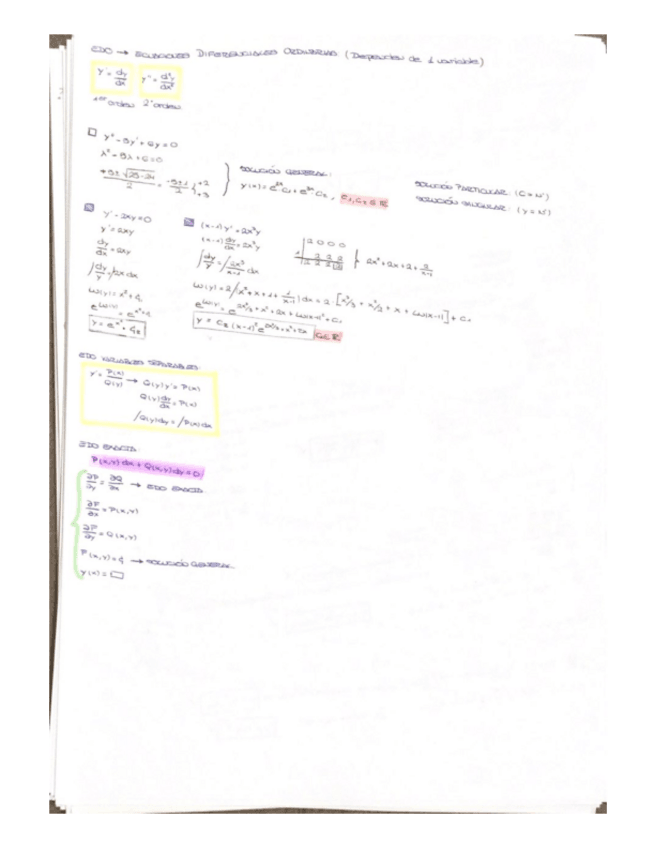 EDO → ECUACIONES DIFERENCIALES ORDINARIAS (Dependen de 1 variable)
y' = dy/dx   y'' = d²y/dx²
1er orden   2º orden
y'' - 5y' + 6y = 0
λ² - 5λ + 6 = 0
SOLUCIÓN GENERAL:
y(x) = e^2x C₁ + e^3x C₂, C₁, C₂ ∈ ℝ
SOLUCIÓN PARTICULAR: (C = nº)
SOLUCIÓN SINGULAR: (y = nº)
y' - 2xy = 0
y' = 2xy
dy/dx = 2xy
∫ dy/y = ∫ 2x dx
e^Ln(y) = e^x²+C₁
(x-1) y' = 2x³y
(x-1) dy/dx = 2x³y
∫ dy/y = ∫ 2x³/x-1 dx
2 0 0 0
1 2 2 2
2 2 2 |2
2x² + 2x + 2 + 2/x-1
Ln(y) = 2 ∫ (x² + x + 1 + 1/x-1) dx = 2 · [x³/3 + x²/2 + x + Ln(x-1)] + C₁
y = C₂ (x-1)² e^2x³/3 + x² + 2x C₂ ∈ ℝ
EDO VARIABLES SEPARABLES:
y' = P(x)/Q(y) → Q(y) y' = P(x)
Q(y) dy/dx = P(x)
∫ Q(y) dy = ∫ P(x) dx
EDO EXACTA:
P(x,y) dx + Q(x,y) dy = 0
∂P/∂y = ∂Q/∂x → EDO EXACTA
∂F/∂x = P(x,y)
∂F/∂y = Q(x,y)
F(x,y) = C₁ → SOLUCIÓN GENERAL
y(x) = □